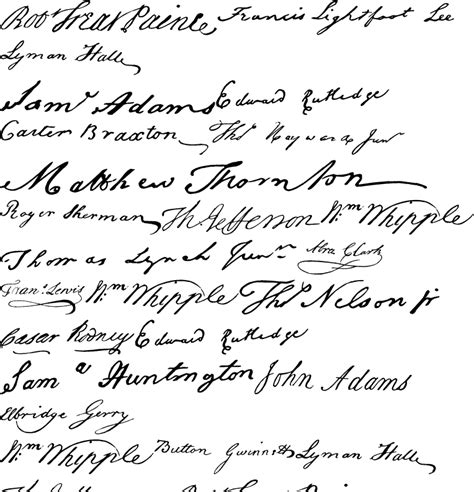 Robt Treat Paine Francis Lightfoot Lee
Lyman Hall
Saml Adams Edward Rutledge
Carter Braxton Thos Heyward Junr
Matthew Thornton
Roger Sherman Th Jefferson Wm Whipple
Thomas Lynch Junr Abra Clark
Frans. Lewis Wm Whipple Thos Nelson jr
Cæsar Rodney Edward Rutledge
Saml Huntington John Adams
Elbridge Gerry
Wm Whipple Button Gwinnett Lyman Hall